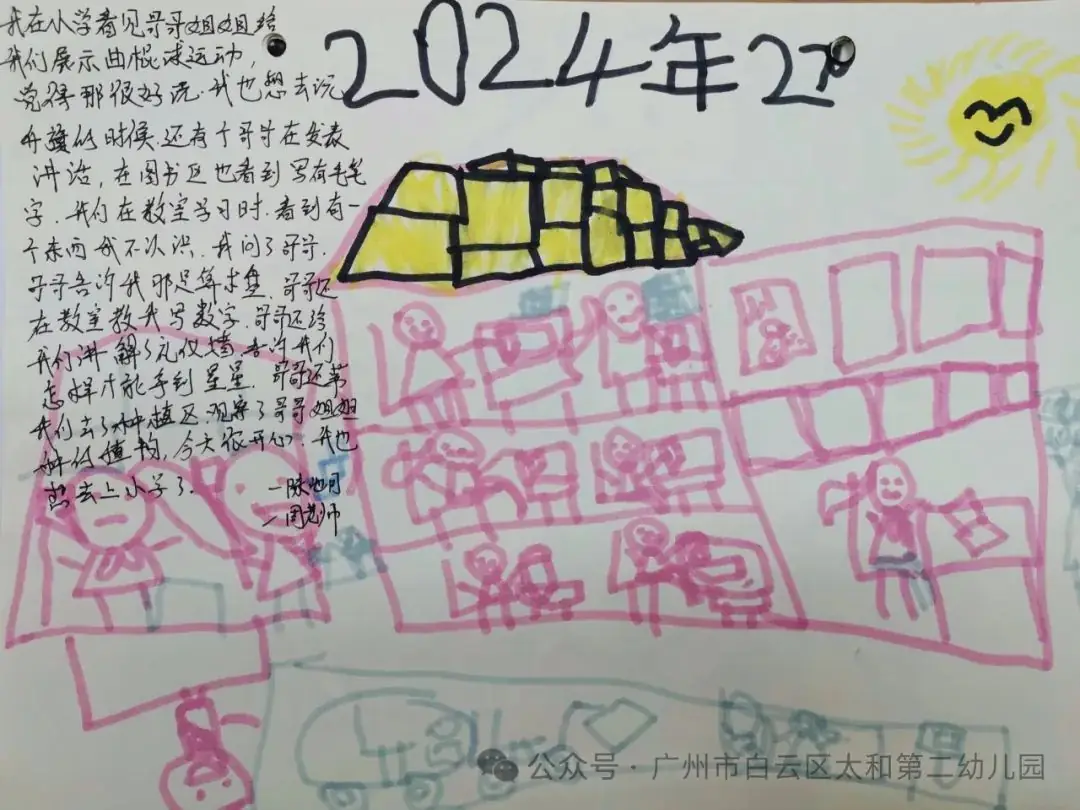 2024年27
我在小学看见哥哥姐姐给
我们展示曲棍球运动,
觉得那很好玩.我也想去玩
升旗的时候.还有个哥哥在发表
讲话,在图书区也看到写有毛笔
字.我们在教室学习时.看到有一
个东西我不认识.我问了哥哥.
哥哥告诉我那是算术盘.哥哥还
在教室教我写数字.哥哥还给
我们讲解了礼仪墙.告诉我们
怎样才能拿到星星.哥哥还带
我们去了种植区.观察了哥哥姐姐
种的植物,今天很开心.我也
想去上小学了.
一周老师
公众号·广州市白云区太和第二幼儿园